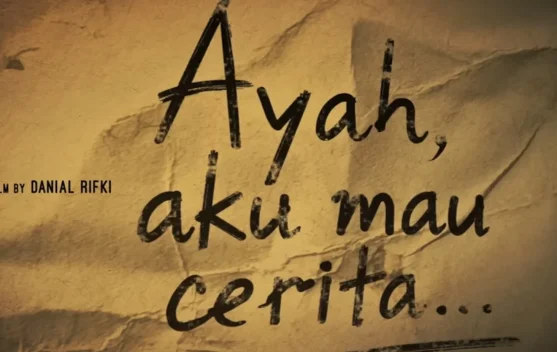 Ayah,
aku mau
cerita...
BY DANIAL RIFKI